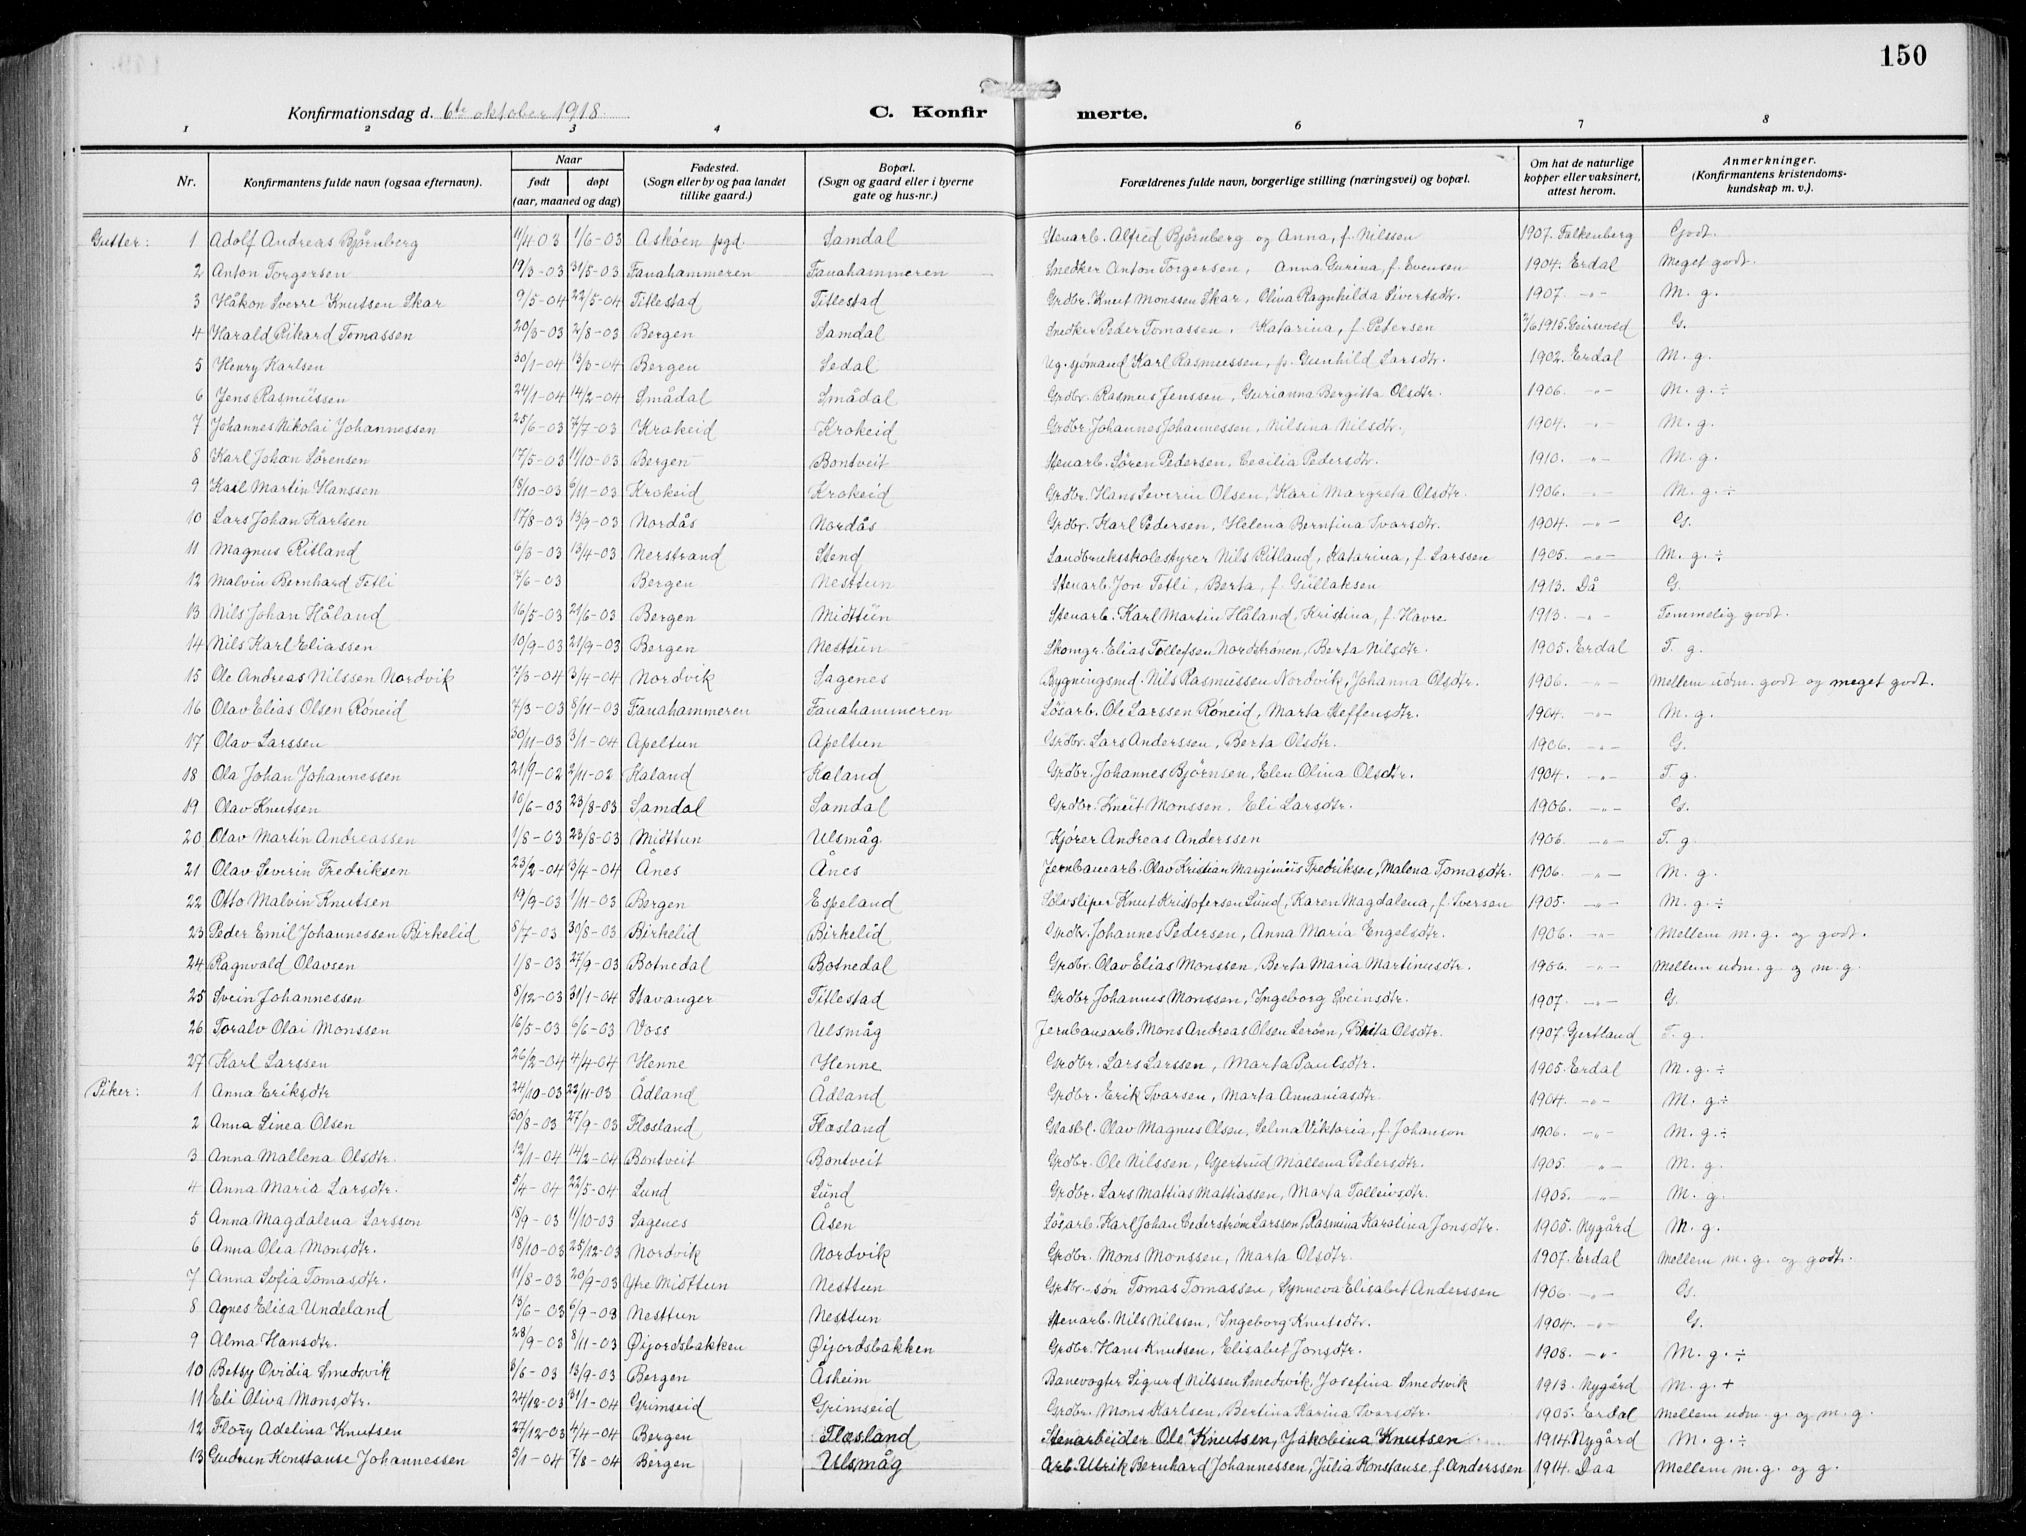 150
Konfirmationsdag d. 6te oktober 1918. C. Konfirmerte.
1 2 3 4 5 6 7 8
Nr. Konfirmantens fulde navn (ogsaa efternavn). Naar født døpt (aar, maaned og dag) Fødested. (Sogn eller by og paa landet tillike gaard.) Bopæl. (Sogn og gaard eller i byerne gate og hus-nr.) Forældrenes fulde navn, borgerlige stilling (næringsvei) og bopæl. Om hat de naturlige kopper eller vaksinert, attest herom. Anmerkninger. (Konfirmantens kristendomskundskap m. v.).
Gutter: 1 Adolf Andreas Bjørnberg 11/4 03 1/6-03 Askøen pgd. Samdal Stenarb. Alfred Bjørnberg og Anna, f. Nilssen 1907. Falkenberg Godt.
2 Anton Torgersen 19/3-03 31/5-03 Fanahammeren Fanahammeren Snedker Anton Torgersen, Anna Gurina, f. Evensen 1904. Erdal Meget godt.
3 Håkon Sverre Knutsen Skar 9/5-04 22/5-04 Titlestad Titlestad Grdbr. Knut Monssen Skar, Olina Ragnhilda Sivertsdtr. 1907. -"- M. g.
4 Harald Rikard Tomassen 20/3-03 2/8-03 Bergen Samdal Snedker Peder Tomassen, Katarina, f. Petersen 2/6 1915. G.
5 Henry Karlsen 30/1-04 13/3-04 Bergen Sedal Ug. sjømand Karl Rasmussen, p. Gunhild Larsdtr. 1902. Erdal M. g.
6 Jens Rasmussen 24/1-04 14/2-04 Smådal Smådal Grdbr. Rasmus Jenssen, Gurianna Bergitta Olsdtr. 1906. -"- M. g. ÷
7 Johannes Nikolai Johannessen 25/6-03 7/7-03 Krokeid Krokeid Grdbr. Johannes Johannessen, Nilsina Nilsdtr. 1904. -"- M. g.
8 Karl Johan Sørensen 17/5-03 11/10-03 Bergen Bontveit Stenarb. Søren Pedersen, Cecilia Pedersdtr. 1910. -"- M. g.
9 Karl Martin Hanssen 18/10-03 6/11-03 Krokeid Krokeid Grdbr. Hans Severin Olsen, Kari Margreta Olsdtr. 1906. -"- M. g. ÷
10 Lars Johan Karlsen 17/8-03 13/9-03 Nordås Nordås Grdbr. Karl Pedersen, Helena Berntina Ivarsdtr. 1904. -"- G.
11 Magnus Ritland 6/3-03 13/4-03 Nerstrand Stend Landbruksskolestyrer Nils Ritland, Katarina, f. Larssen 1905. -"- M. g. ÷
12 Malvin Bernhard Tetli 7/6-03 Bergen Nesttun Stenarb. Jon Tetli, Berta, f. Gullaksen 1913. Då G.
13 Nils Johan Håland 16/5-03 21/6-03 Bergen Midttun Stenarb. Karl Martin Håland, Kristina, f. Havre 1913. -"- Temmelig godt.
14 Nils Karl Eliassen 10/9-03 21/9-03 Bergen Nesttun Skomgr. Elias Tollefsen Nordstrønen, Berta Nilsdtr. 1905. Erdal T. g.
15 Ole Andreas Nilssen Nordvik 7/3-04 3/4-04 Nordvik Sagenes Bygningsmd. Nils Rasmussen Nordvik, Johanna Olsdtr. 1906. -"- Mellem udm. godt og meget godt.
16 Olav Elias Olsen Røneid 7/3-03 8/11-03 Fanahammeren Fanahammeren Løsarb. Ole Larssen Røneid, Marta Steffensdtr. 1904. -"- M. g.
17 Olav Larssen 30/11-03 3/1-04 Apeltun Apeltun Grdbr. Lars Anderssen, Berta Olsdtr. 1906. -"- G.
18 Ola Johan Johannessen 21/9-02 2/11-02 Kaland Kaland Grdbr. Johannes Bjørnsen, Elen Olina Olsdtr. 1904. -"- T. g.
19 Olav Knutsen 10/6-03 23/8-03 Samdal Samdal Grdbr. Knut Monssen, Eli Larsdtr. 1906. -"- G.
20 Olav Martin Andreassen 1/8-03 23/8-03 Midttun Ulsmåg Kjører Andreas Anderssen 1906. -"- T. g.
21 Olav Severin Fredriksen 23/2-04 3/4-04 Ånes Ånes Jernbanearb. Olav Kristian Fredriksen, Malena Tomasdtr. 1906. -"- M. g.
22 Otto Malvin Knutsen 19/9-03 1/11-03 Bergen Espeland Sølvsliper Knut Kristofersen Lund, Karen Magdalena, f. Iversen 1905. -"- M. g. ÷
23 Peder Emil Johannessen Birkelid 8/7-03 30/8-03 Birkelid Birkelid Grdbr. Johannes Pedersen, Anna Maria Engelsdtr. 1906. -"- Mellem m. g. og godt.
24 Ragnvald Olavsen 1/8-03 27/9-03 Botnedal Botnedal Grdbr. Olav Elias Monssen, Berta Maria Martinusdtr. 1906. -"- Mellem udm. g. og m. g.
25 Svein Johannessen 8/12-03 31/1-04 Stavanger Titlestad Grdbr. Johannes Monssen, Ingeborg Sveinsdtr. 1907. -"- G.
26 Toralv Olai Monssen 16/5-03 6/6-03 Voss Ulsmåg Jernbanearb. Mons Andreas Olsen Lerøen, Brita Olsdtr. 1907. Gjertland T. g.
27 Karl Larssen 26/2-04 4/4-04 Henne Henne Grdbr. Lars Larssen, Marta Paulsdtr. 1905. Erdal M. g. ÷
Piker: 1 Anna Eriksdtr 24/10-03 22/11-03 Ådland Ådland Grdbr. Erik Ivarsen, Marta Annaniasdtr. 1904. -"- M. g. ÷
2 Anna Linea Olsen 30/8-03 27/9-03 Flesland Flesland Glasbl. Olav Magnus Olsen, Selma Viktoria, f. Johanson 1906. -"- M. g. ÷
3 Anna Mallena Olsdtr. 12/1-04 14/2-04 Bontveit Bontveit Grdbr. Ole Nilssen, Gjertrud Mallena Pedersdtr. 1905. -"- M. g.
4 Anna Maria Larsdtr. 5/4-04 22/5-04 Lund Lund Grdbr. Lars Mattias Mattiassen, Marta Tolleivsdtr. 1905. -"- M. g.
5 Anna Magdalena Larsson 18/9-03 11/10-03 Sagenes Åsen Løsarb. Karl Johan Cederstrøm Larsson, Rasmina Karolina Jonsdtr. 1905. Nygård M. g.
6 Anna Olea Monsdtr. 18/10-03 25/12-03 Nordvik Nordvik Grdbr. Mons Monssen, Marta Olsdtr. 1907. Erdal Mellem m. g. og godt.
7 Anna Sofia Tomasdtr. 11/8-03 20/9-03 Ytre Midttun Nesttun Grdbr.-søn Tomas Tomassen, Synneva Elisabet Anderssen 1906. -"- G.
8 Agnes Elisa Undeland 13/6-03 6/9-03 Nesttun Nesttun Stenarb. Nils Nilssen, Ingeborg Knutsdtr. 1904. -"- G.
9 Alma Hansdtr. 28/9-03 8/11-03 Øijordsbakken Øijordsbakken Grdbr. Hans Knutsen, Elisabet Jonsdtr. 1908. -"- M. g. ÷
10 Betsy Ovidia Smedsvik 3/6-03 13/9-03 Bergen Åsheim Banevogter Sigurd Nilssen Smedsvik, Josefina Smedsvik 1913. Nygård M. g. +
11 Eli Oliva Monsdtr. 24/12-03 31/1-04 Grimseid Grimseid Grdbr. Mons Karlsen, Bertina Karina Ivarsdtr. 1905. Erdal Mellem udm. g. og m. g.
12 Flory Adelina Knutsen 27/12-03 4/4-04 Bergen Flesland Stenarbeider Ole Knutsen, Jakobina Knutsen 1914. Nygård M. g. ÷
13 Gudrun Konstanse Johannessen 5/1-04 7/8-04 Bergen Ulsmåg Arb. Ulrik Bernhard Johannessen, Julia Konstanse, f. Anderssen 1914. Daa Mellem m. g. og g.